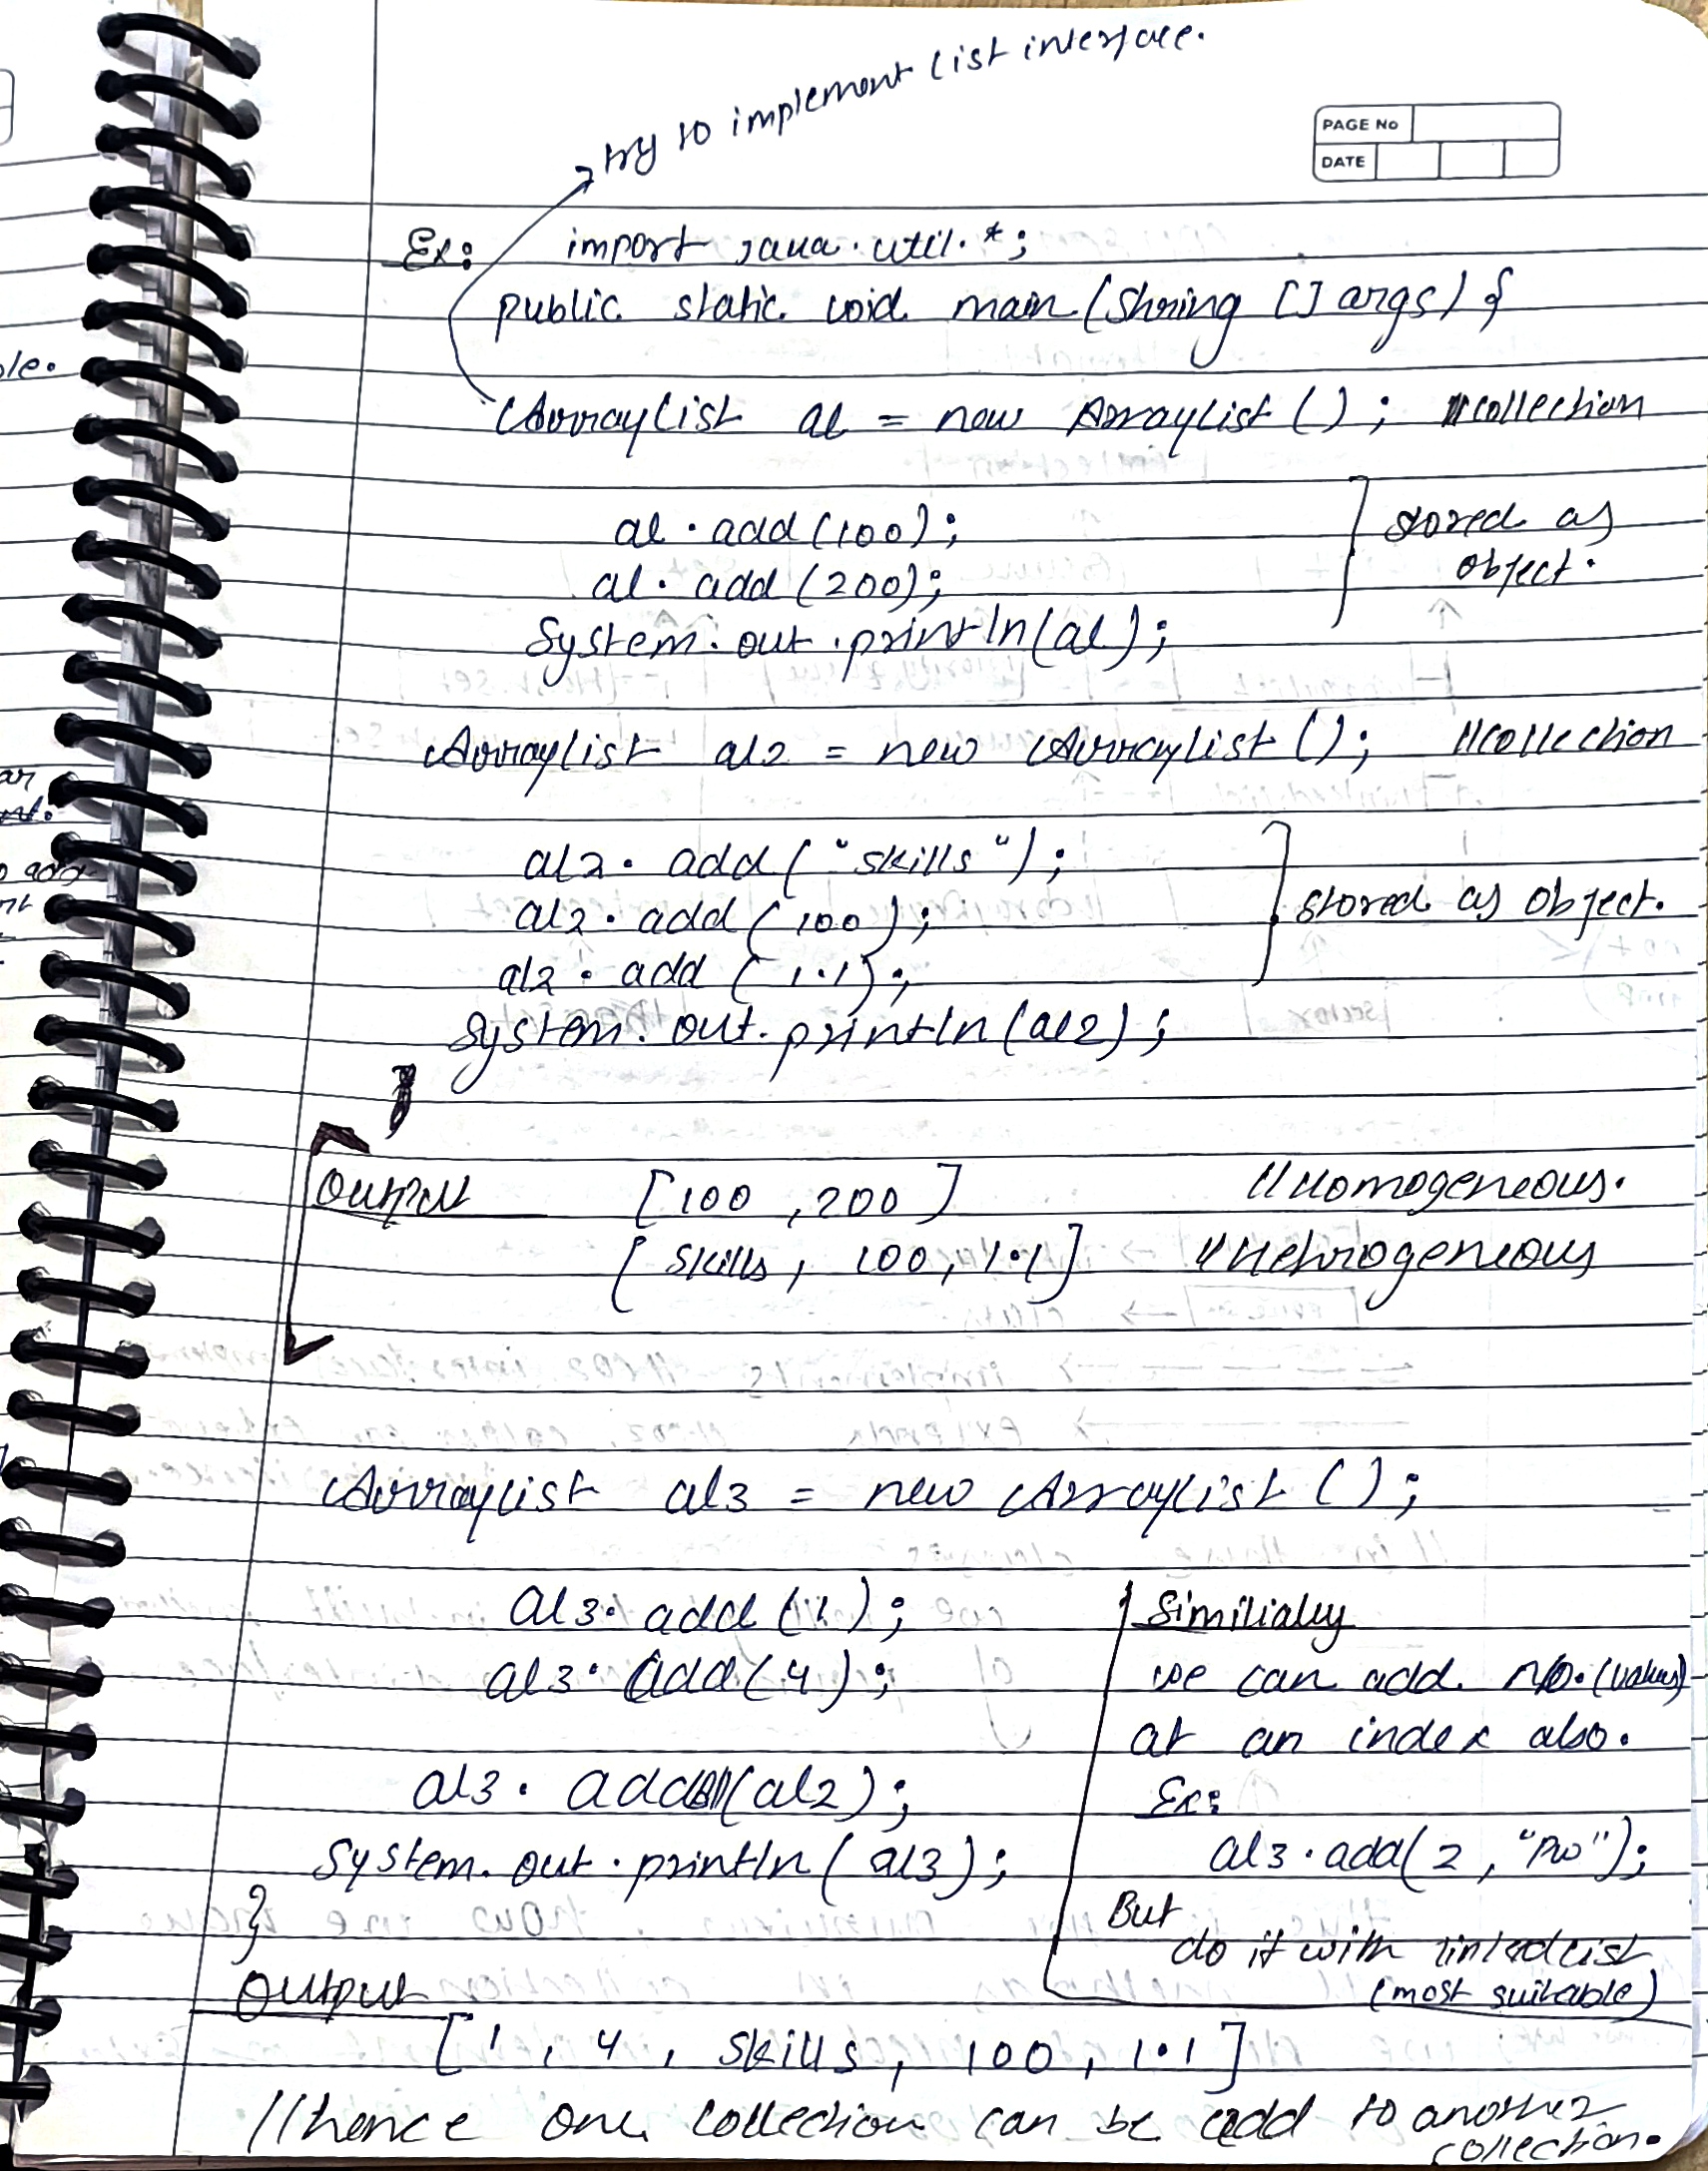 try to implement list interface.
PAGE No
DATE
Ex: import java.util.*;
public static void main (String [] args) {
ArrayList al = new ArrayList (); //collection
al.add(100);
al.add(200);
stored as
object.
System.out.println(al);
ArrayList al2 = new ArrayList (); //collection
al2.add("skills");
al2.add(100);
al2.add(1.1);
stored as object.
System.out.println(al2);
Output [100, 200] //Homogeneous.
[skills, 100, 1.1] //Hehrogeneous
ArrayList al3 = new ArrayList ();
al3.add(1);
al3.add(4);
al3.addAll(al2);
System.out.println(al3);
}
Similialy
we can add no.(values)
at an index also.
Ex:
al3.add(2, "PW");
But
do it with linkedlist
(most suitable)
Output
[1, 4, skills, 100, 1.1]
//hence one collection can be add to another
collection.
ole.
ar